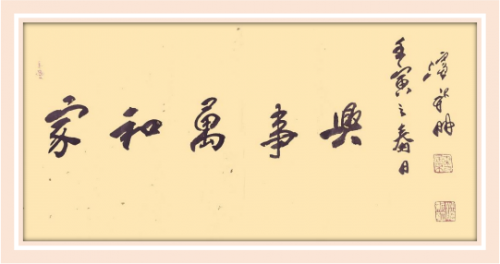 家和萬事興
壬寅之春日